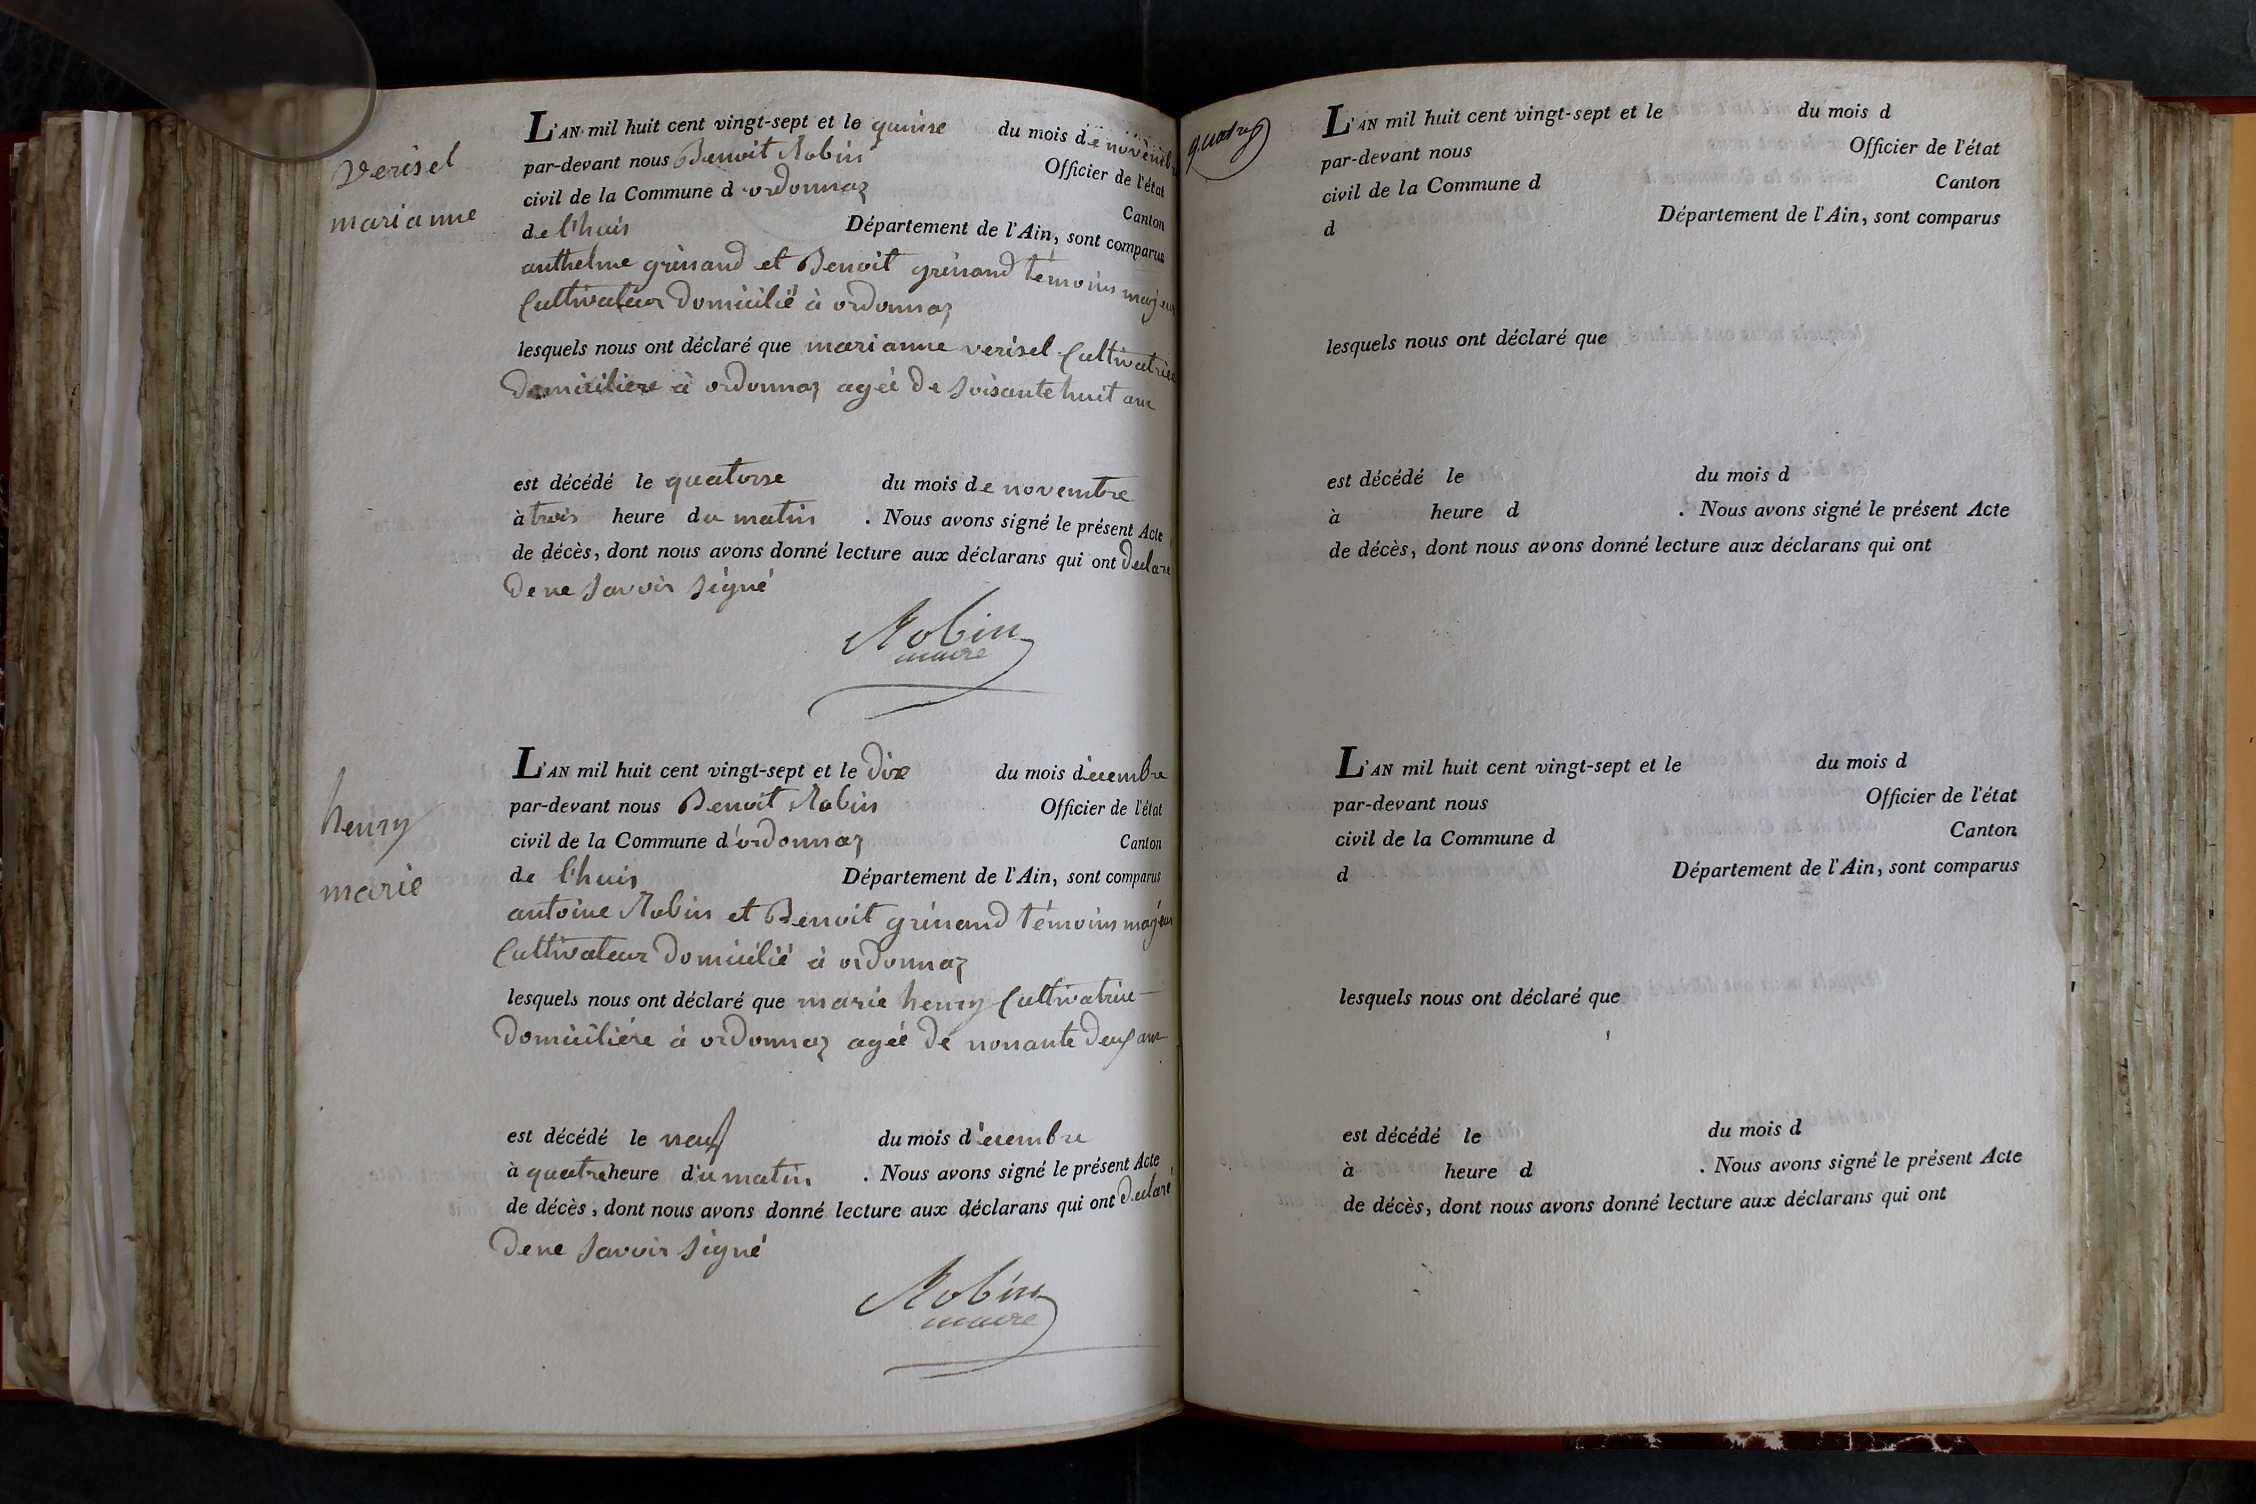 verisel
marianne
L'AN mil huit cent vingt-sept et le quinse du mois de novembre
par-devant nous Benoit Robin Officier de l'état
civil de la Commune d ordonnaz Canton
de l'huis Département de l'Ain, sont comparus
anthelme grinand et Benoit grinand témoins majeur
Cultivateur Domicilié à ordonnaz
lesquels nous ont déclaré que marianne verisel Cultivatrice
Domiciliere à ordonnaz agéé De soisante huit ans
est décédé le quatorse du mois de novembre
à trois heure du matin . Nous avons signé le présent Acte
de décès, dont nous avons donné lecture aux déclarans qui ont Declaré
De ne savoir signé
Robin
maire
henry
marie
L'AN mil huit cent vingt-sept et le dix du mois d'ecembre
par-devant nous Benoit Robin Officier de l'état
civil de la Commune d'ordonnaz Canton
de l'huis Département de l'Ain, sont comparus
antoine Robin et Benoit grinand témoins majeur
Cultivateur Domicilié à ordonnaz
lesquels nous ont déclaré que marie henry Cultivatrice
Domiciliére à ordonnaz agéé De nonante Deux ans
est décédé le neuf du mois d'ecembre
à quatre heure d'u matin . Nous avons signé le présent Acte
de décès, dont nous avons donné lecture aux déclarans qui ont Declaré
De ne savoir signé
Robin
maire
L'AN mil huit cent vingt-sept et le du mois d
par-devant nous Officier de l'état
civil de la Commune d Canton
d Département de l'Ain, sont comparus
lesquels nous ont déclaré que
est décédé le du mois d
à heure d . Nous avons signé le présent Acte
de décès, dont nous avons donné lecture aux déclarans qui ont
L'AN mil huit cent vingt-sept et le du mois d
par-devant nous Officier de l'état
civil de la Commune d Canton
d Département de l'Ain, sont comparus
lesquels nous ont déclaré que
est décédé le du mois d
à heure d . Nous avons signé le présent Acte
de décès, dont nous avons donné lecture aux déclarans qui ont